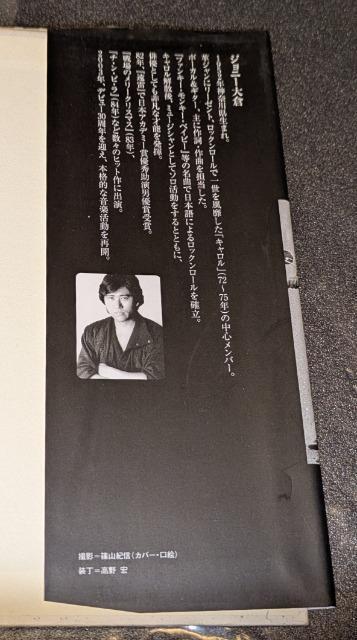 ジョニー大倉
1952年神奈川県生まれ。
革ジャンにリーゼント、ロックンロールで一世を風靡した「キャロル」(72〜75年)の中心メンバー。
ボーカル&ギター、主に作詞・作曲を担当した。
「ファンキー・モンキー・ベイビー」等の名曲で日本語によるロックンロールを確立。
キャロル解散後、ミュージシャンとしてソロ活動をするとともに、
俳優としても非凡な才能を発揮。
82年、『遠雷』で日本アカデミー賞優秀助演男優賞受賞。
『戦場のメリークリスマス』(83年)、
『チ・ン・ピ・ラ』(84年)など数々のヒット作に出演。
2003年、デビュー30周年を迎え、本格的な音楽活動を再開。
撮影=篠山紀信(カバー・口絵)
装丁=高野 宏